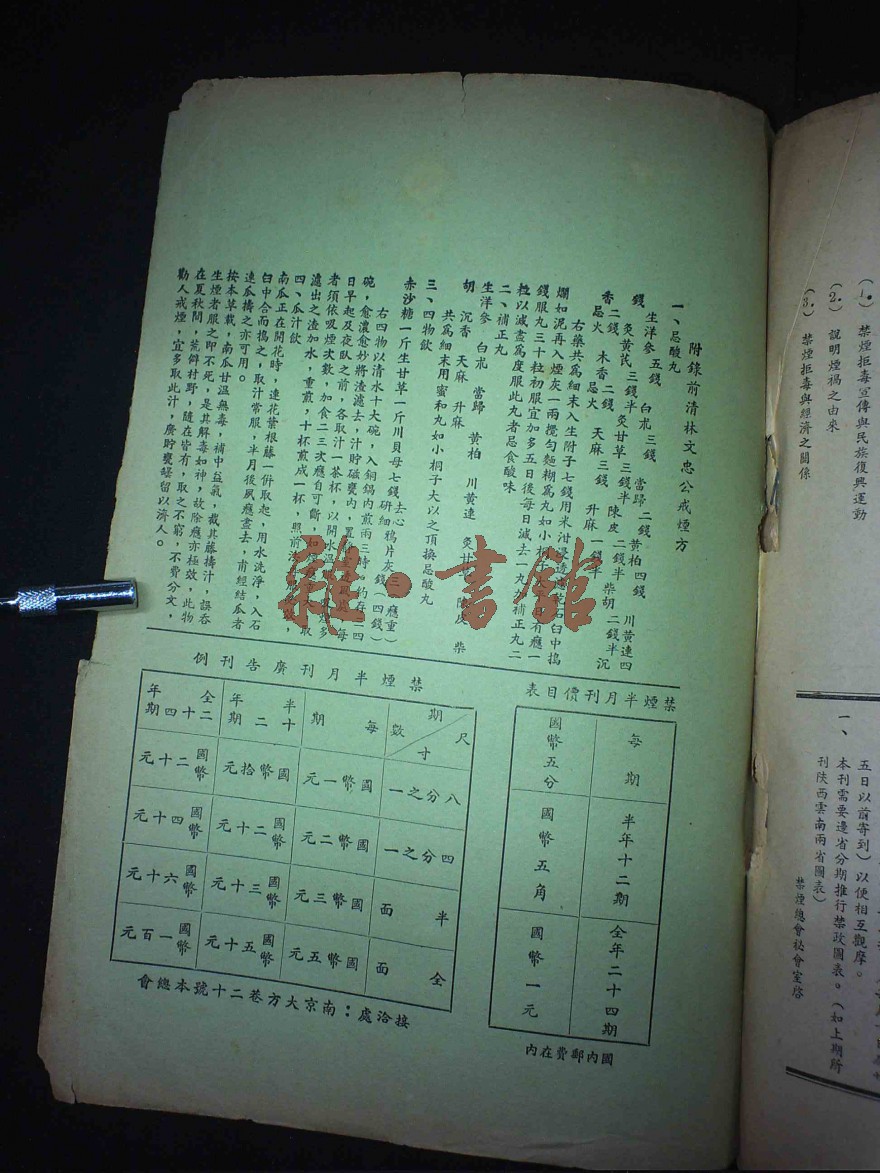 (1.) 禁煙拒毒宣傳與民族復興運動
(2.) 說明煙禍之由來
(3.) 禁煙拒毒與經濟之關係
一、
五日以前寄到）以便相互觀摩。
本刊需要邊省分期推行禁政圖表。（如上期所
刊陝西雲南兩省圖表）
禁煙總會秘會室啓
附錄前清林文忠公戒煙方
一、忌酸丸
生洋參五錢 白朮三錢 當歸二錢 黃柏四錢 川黃連四
錢 炙黃芪三錢半 炙甘草三錢半 陳皮二錢半 柴胡二錢半 沉
香二錢忌火 木香二錢忌火 天麻三錢 升麻一錢半
右藥共為細末入生附子七錢用米泔浸透 石臼中搗
爛如泥再入煙灰一兩攪勻麵糊為丸如小桐子大 有癮一
錢服丸三十粒初服宜加多五日後每日減去一丸 補正丸二
粒以減盡為度服此丸者忌食酸味
二、補正丸
生洋參 白朮 當歸 黃柏 川黃連 炙甘 陳皮 柴
胡 沉香 天麻 升麻
共為細末用蜜和丸如小桐子大以之頂換忌酸丸
三、四物飲
赤沙糖一斤生甘草一斤川貝母七錢去心 研細鴉片灰三錢（癮重四錢）
右四物以清水十大碗，入銅鍋內煎兩三時 約存三四
碗，愈濃愈妙將渣濾去，汁貯磁甕內，置 每
日早起及夜臥之前，各取汁一茶杯，以開水溫
者須依吸煙次數，加食二三次應自可斷，如 多
濾出之渣加水，重煎，十杯煎成一杯，照前
四、瓜汁飲
南瓜正在開花時，連花葉根藤一併取起，用水洗淨，入石
臼中合而搗之，取汁常服，半月後夙應盡去，甫經結瓜者
連瓜擣之亦可用。
按本草載，南瓜甘溫無毒，補中益氣，截其藤擣汁，誤吞
生煙者服之即不死，是其解毒如神，故除應亦極效，此物
在夏秋間，荒僻村野，隨在皆有，取之不窮，不費分文，
勸人戒煙，宜多取此汁，廣貯甕罌留以濟人。
雜·書館
禁煙半月刊價目表
每期 國幣五分
半年十二期 國幣五角
全年二十四期 國幣一元
國內郵費在內
禁煙半月刊廣告刊例
期數 尺寸 每期 半年十二期 全年二十四期
八分之一 國幣一元 國幣拾元 國幣二十元
四分之一 國幣二元 國幣二十元 國幣四十元
半面 國幣三元 國幣三十元 國幣六十元
全面 國幣五元 國幣五十元 國幣一百元
接洽處：南京大方巷二十號本總會